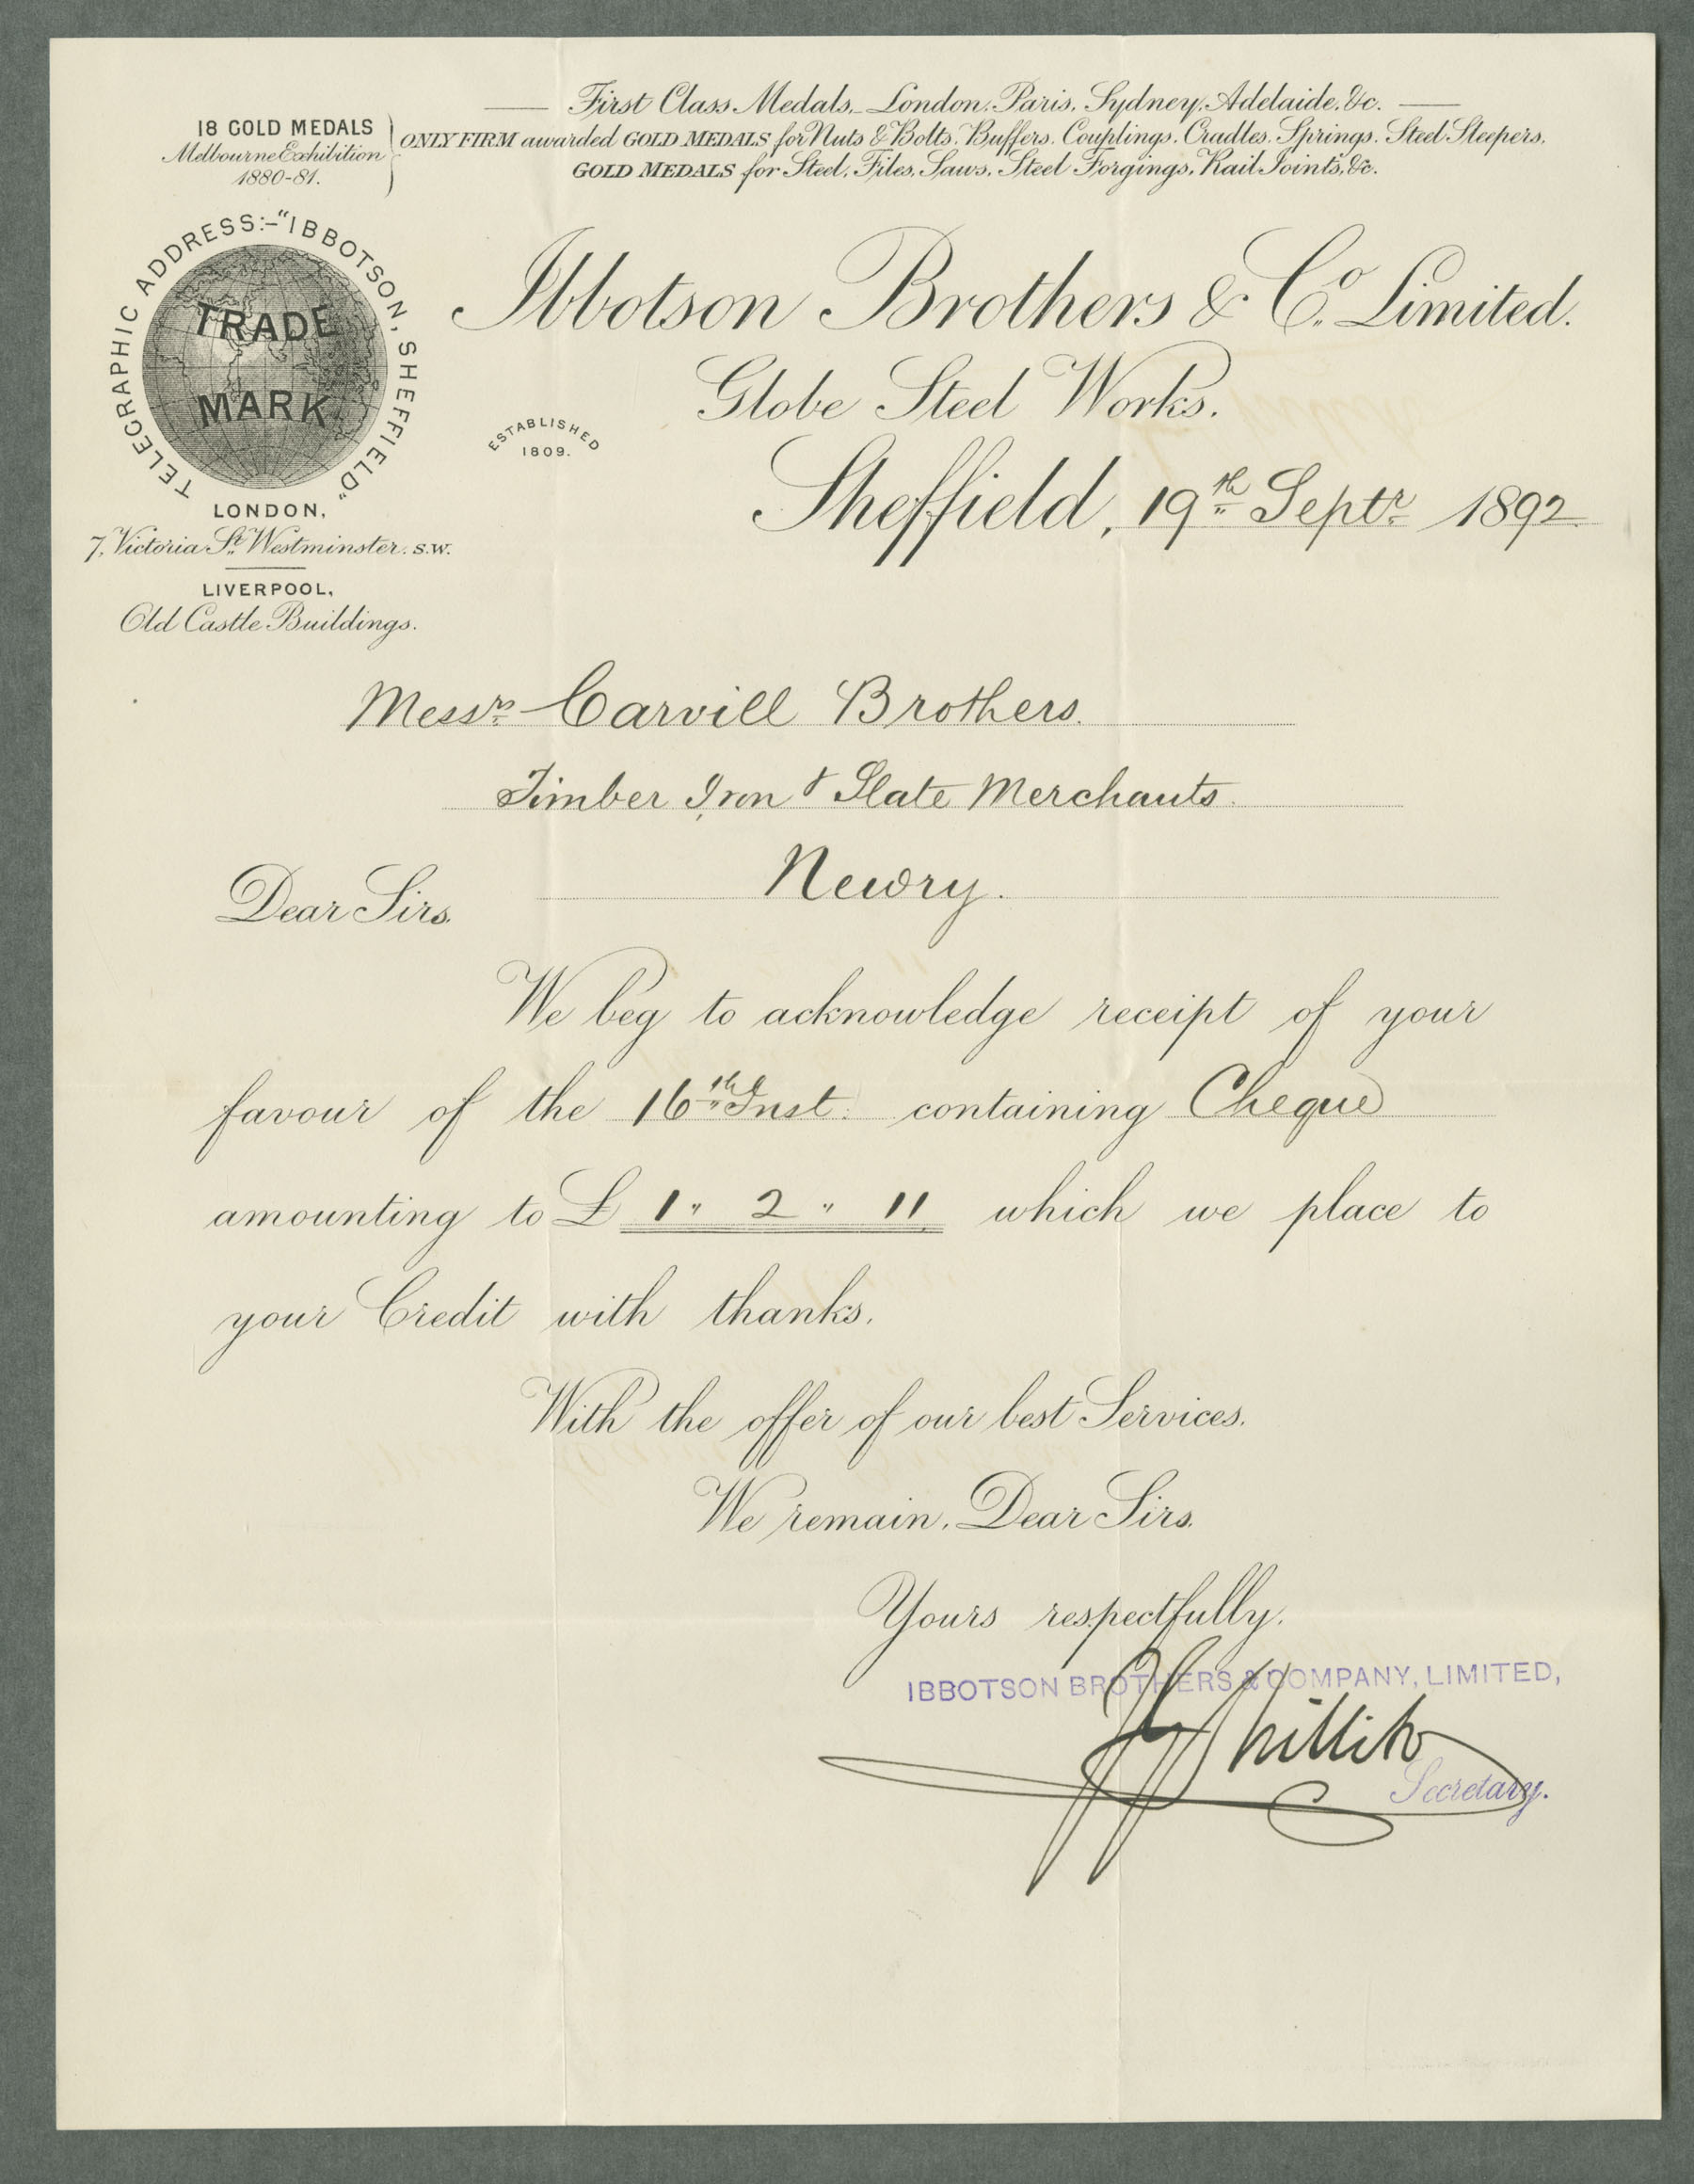 First Class Medals,_London, Paris, Sydney, Adelaide, &c.
18 GOLD MEDALS
Melbourne Exhibition
1880-81.
ONLY FIRM awarded GOLD MEDALS for Nuts & Bolts, Buffers, Couplings, Cradles, Springs, Steel Sleepers,
GOLD MEDALS for Steel, Files, Saws, Steel Forgings, Rail Joints, &c.
TELEGRAPHIC ADDRESS:-"IBBOTSON, SHEFFIELD"
TRADE
MARK
Ibbotson Brothers & Co. Limited.
Globe Steel Works.
ESTABLISHED
1809.
Sheffield, 19th Septr 1892
LONDON,
7, Victoria St. Westminster. S.W.
LIVERPOOL,
Old Castle Buildings.
Messrs Carvill Brothers.
Timber Iron & Slate Merchants.
Newry.
Dear Sirs.
We beg to acknowledge receipt of your
favour of the 16th Inst. containing Cheque
amounting to £ 1 " 2 " 11 which we place to
your Credit with thanks.
With the offer of our best Services.
We remain, Dear Sirs.
Yours respectfully.
IBBOTSON BROTHERS & COMPANY, LIMITED,
Secretary.